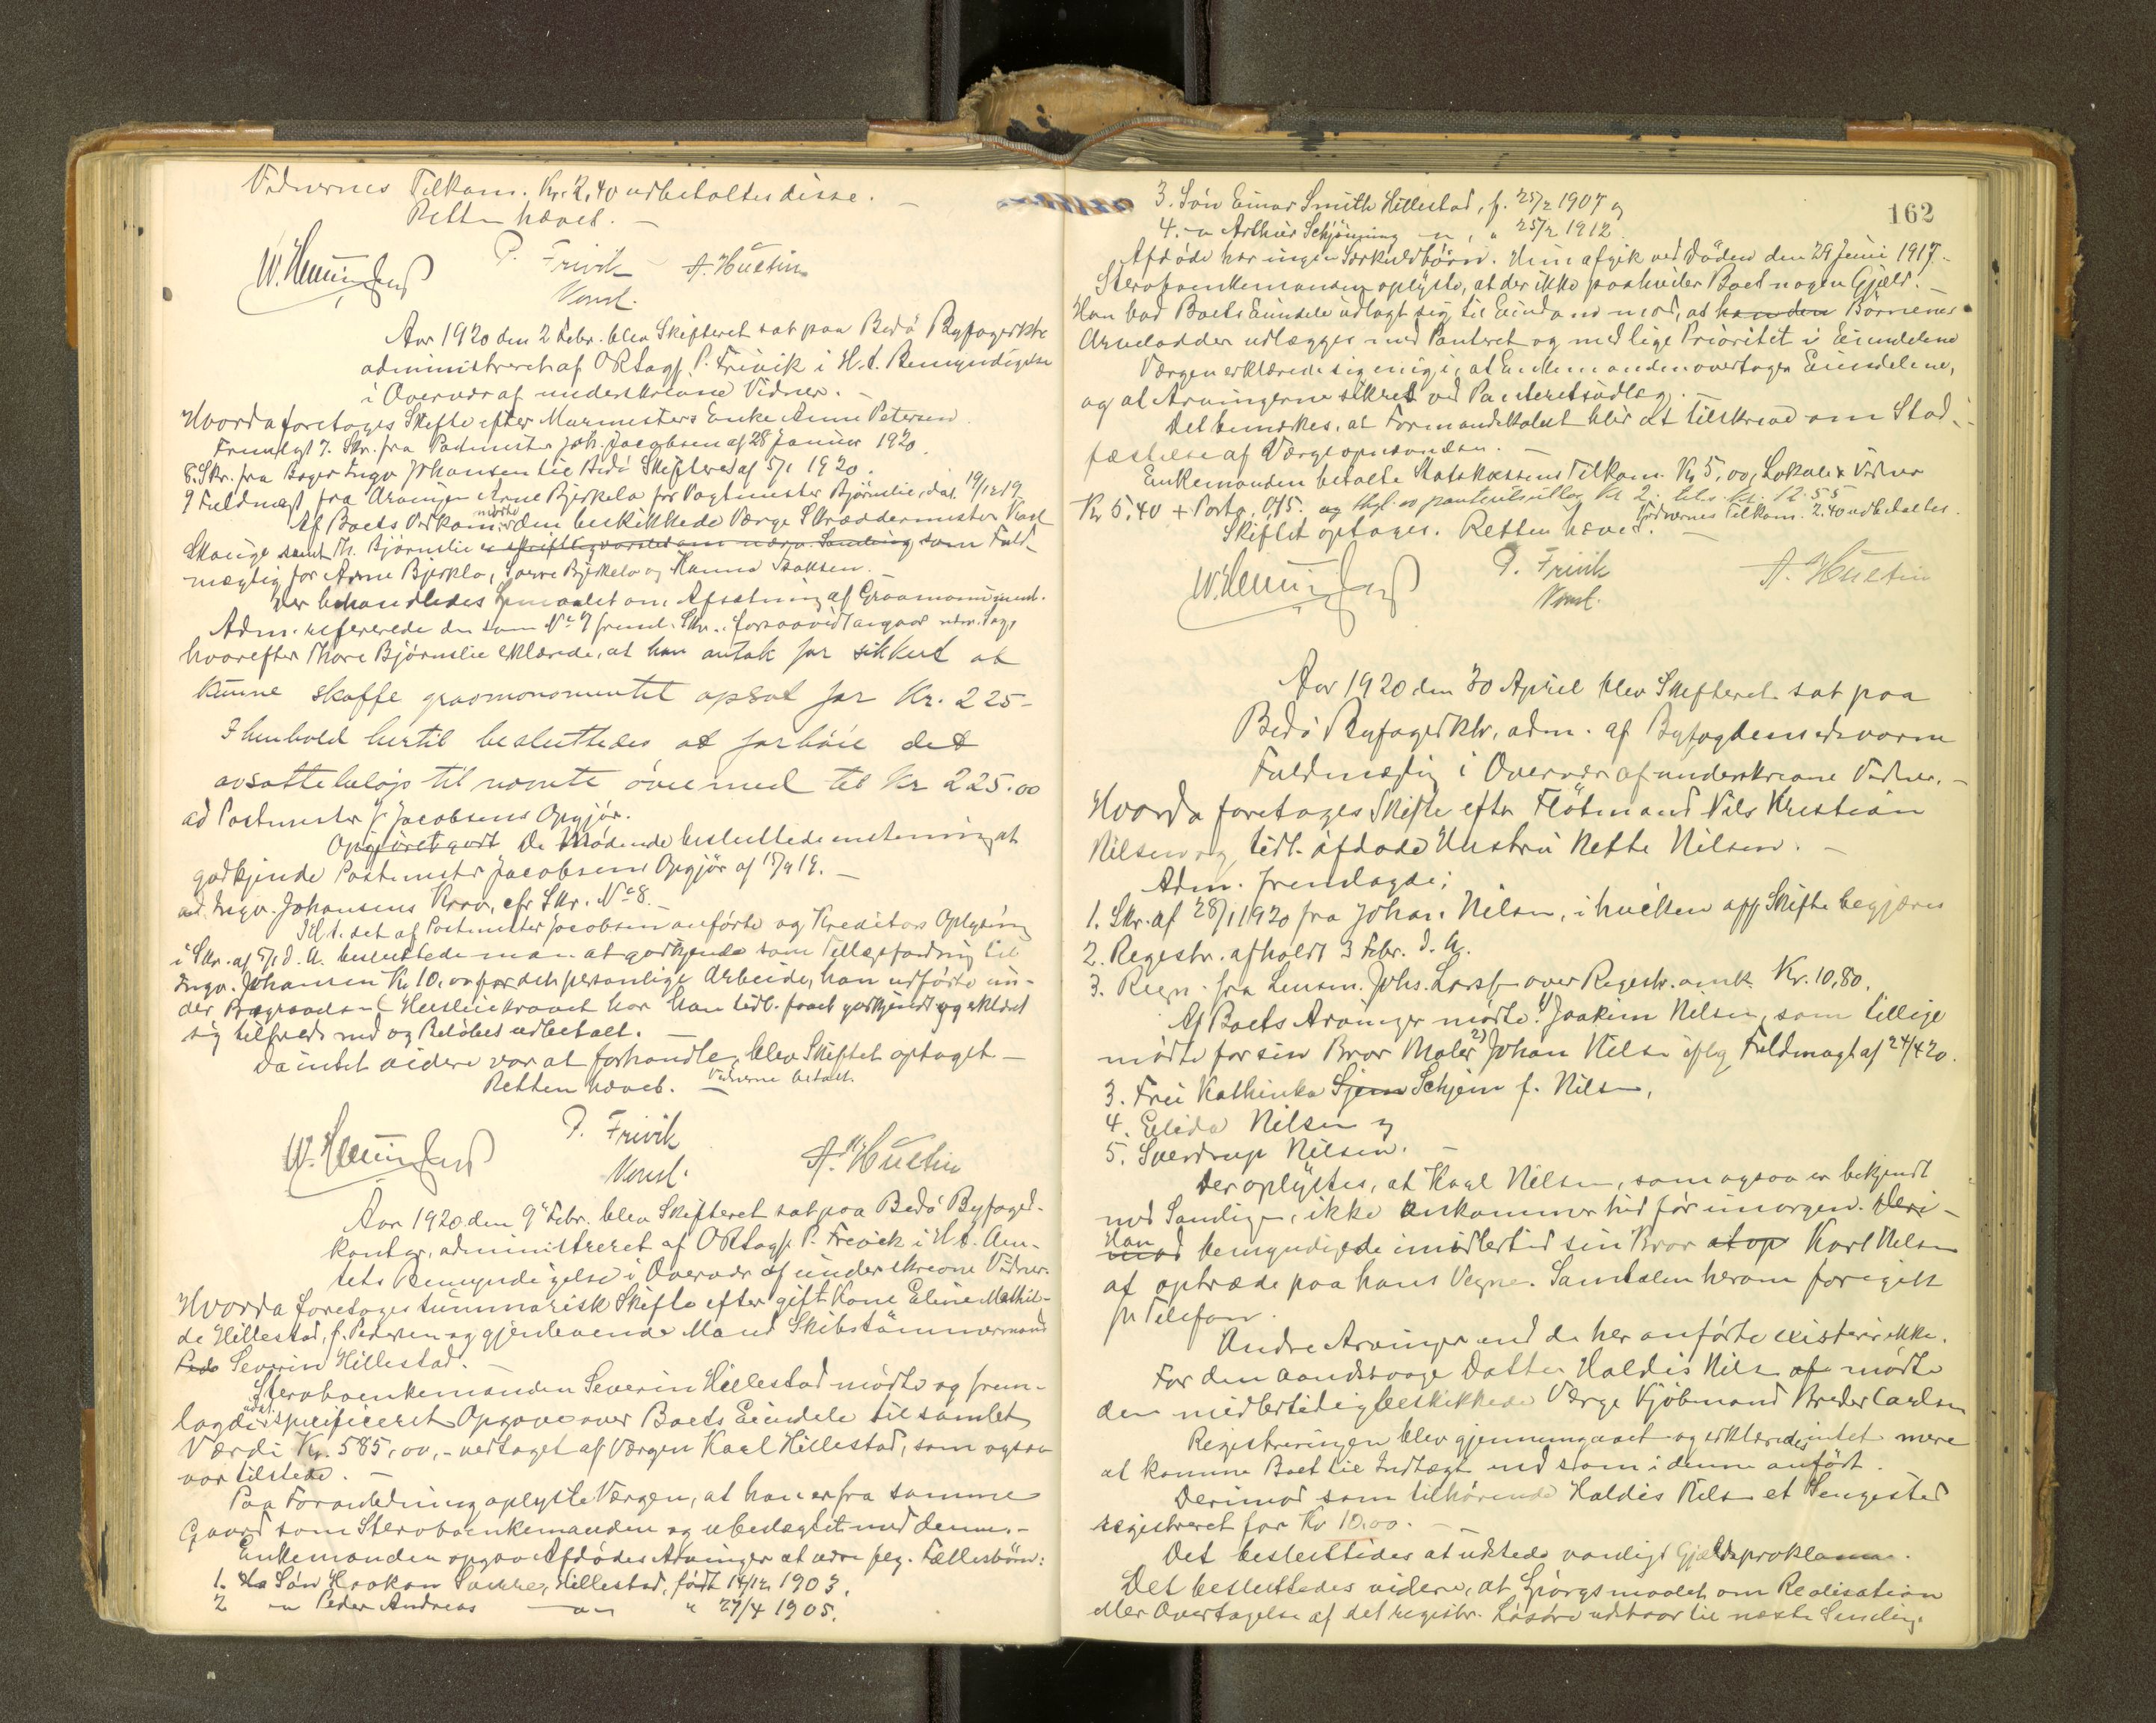 Vidnernes Tilkom. Kr. 2,40 udbetaltes disse. –
Retten hævet. –
P. Frivik
Const.
A. Huetin
Aar 1920 den 2 Febr. blev Skifteret sat paa Bodö Byfogedktr
administreret af ORsagf. P. Frivik i H.t. Bemyndigelse
i Overvær af underskrevne Vidner. –
Hvorda foretoges Skifte efter Murmesters Enke Anne Petersen
Fremlagt 7. Skr. fra Postmester Joh. Jacobsen af 28 Januar 1920
8. Skr. fra Bager Ingv Johansen til Bodö Skifteret af 5/1 1920.
9 Fuldmagt fra Arvingen Arne Bjerkelo for Vagtmester Björnslie, dat. 19/12 19
Af Boets Vedkom. mödte den beskikkede Værge Skræddermester Karl
Skauge samt Th. Björnslie er skriftlig varslet om nærv. Samling som Fuld-
mægtig for Arne Bjerklo, Sovre Bjerkelo og Hanna Isaksen.
Der behandledes Spmaalet om Afsætning af Gravmonument.
Adm. refererede den som No 9 freml. Skr. forsaavidt angaar nævn. Sag,
hvorefter Thore Björnslie erklærede, at han antok for sikkert at
kunne skaffe gravmonumentet opsat for Kr. 225-
I henhold hertil besluttedes at forhöie det
avsatte belöp til nevnte öiemed til Kr 225.00
ad Postmester J. Jacobsens Opgjör.
Opgjöret godt De Mödende besluttede enstemmig at
godkjende Postmester Jacobsens Opgjör af 15/9 19. –
ad Ingv. Johansens Krav, cfr Skr. No 8. –
I H.t. det af Postmester Jacobsen anförte og Kreditors Oplysning
i Skr. af 5/1 d. A. besluttede man at godkjende som Tillægsfordring til
Ingv. Johansen Kr 10,00 for det personlige Arbeide, han udförte un-
der Begravelsen (Husleiekravet har han tidl. faaet godkjendt og erklæret
sig tilfreds med og Belöbet udbetalt. –
Da intet videre var at forhandle, blev Skiftet optaget –
Retten hævet. – Vidnerne betalt.
P. Frivik
Const.
A. Huetin
Aar 1920 den 9 Febr. blev Skifteret sat paa Bodö Byfoged-
kontor, administreret af ORsagf. P. Frivik i H.t. Am-
tets Bemyndigelse i Overvær af underskrevne Vidner.
Hvorda foretoges summarisk Skifte efter gift Kone Eline Mathil-
de Hillestad, f. Pedersen og gjenlevende Mand Skibstömmermand
Peder Severin Hillestad. –
Stervboenkemanden Severin Hillestad mödte og frem-
lagde specificeret Opgave over Boets Eiendele til samlet
Værdi Kr. 585,00, – vedtaget af Værgen Karl Hillestad, som ogsaa
var tilstede. –
Paa Foranledning oplyste Værgen, at han er fra samme
Gaard som Stervboenkemanden og ubeslægtet med denne. –
Enkemanden opgav Afdödes Arvinger at være flg. Fællesbörn:
1. Sön Haakon Hillestad, födt 14/12 1903.
2 –"– Peder Andreas –"– " 27/4 1905.
162
3. Sön Einar Smith Hillestad, f. 25/2 1907 og
4. –"– Arthur Schjönning –"–, " 25/2 1912.
Afdöde har ingen Særkuldbörn. Hun afgik ved Döden den 29 Juni 1917. –
Stervboenkemanden oplyste, at der ikke paahviler Boet nogen Gjæld. –
Han bad Boets Eiendele udlagt sig til Eiendom mod, at han den Börnenes
Arvelodder udlægges med Panteret og med lige Prioritet i Eiendelene
Værgen erklærede sig enig i, at Enkemanden overtager Eiendelene,
og at Arvingerne sikres ved Panteretsudlæg. –
Det bemærkes, at Formandskabet blir at tilskrive om Stad-
fæstelse af Værgeopnævnelsen. –
Enkemanden betalte Statskassens Tilkom. Kr 5,00, Lokale & Vidner
Kr 5,40 + Porto 0,15. og thgl. av panteretsutlæg Kr 2. tils. kr. 12.55
Skiftet optages. Retten hævet. Vidnernes Tilkom. 2.40 udbetaltes.
P. Frivik
Const.
A. Huetin
Aar 1920 den 30 April blev Skifteret sat paa
Bodö Byfogedktr, adm. af Byfogdens edsvorne
Fuldmægtig i Overvær af underskrevne Vidner. –
Hvorda foretoges Skifte efter Flötmand Nils Kristian
Nilsen og tidl. afdöde Hustru Nette Nilsen. –
Adm. fremlagde:
1. Skr. af 28/1 1920 fra Johan Nilsen, i hvilken off. Skifte begjæres
2. Registr. afholdt 3 Febr. d. A.
3. Regn. fra Lensm. Johs. Larss. over Registr. omk. Kr. 10,80.
Af Boets Arvinger mödte: 1) Joakim Nilsen, som tillige
mödte for sin Bror Maler 2) Johan Nilsen iflg Fuldmagt af 24/4 20.
3. Fru Kathinka Sjem Schjem f. Nilsen,
4. Elida Nilsen og
5. Sverdrup Nilsen. –
Det oplystes, at Karl Nilsen, som ogsaa er bekjendt
med Samlingen, ikke ankommer hid för imorgen. Deri-
mod Han bemyndigede imidlertid sin Bror at op Karl Nilsen
at optræde paa hans Vegne. Samtalen herom foregik
pr Telefon.
Andre Arvinger end de her anförte existerer ikke.
For den aandssvage Datter Haldis Nilsen af mödte
den midlertidig beskikkede Værge Kjöbmand Breder Carlsen
Registreringen blev gjennemgaaet og erklæredes intet mere
at komme Boet til Indtægt end som i denne anfört.
Derimod som tilhörende Haldis Nilsen et Sengested
registreret for Kr 10.00. –
Det besluttedes at udstede vanligt Gjældsproklama.
Det besluttedes videre, at Spörgsmaalet om Realisation
eller Overtagelse af det registr. Lösöre udstaar til næste Samling.